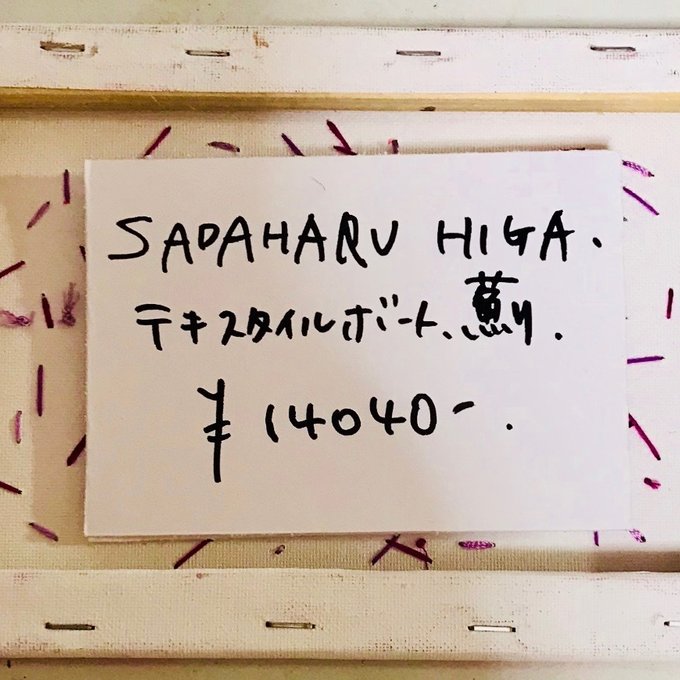 SADAHARU HIGA.
テキスタイルボート、薊.
¥14040-.